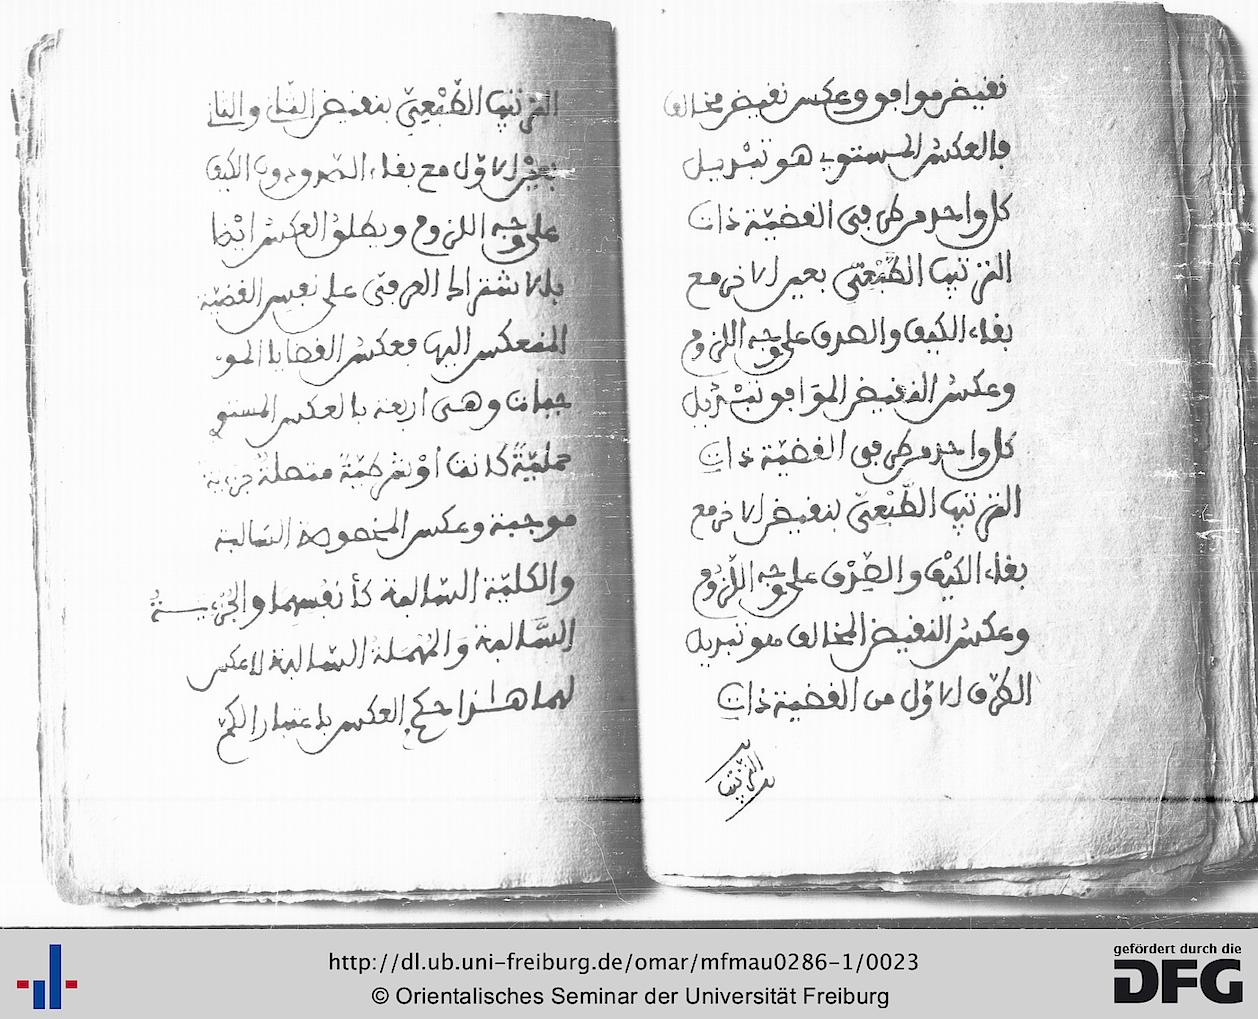 نقيض موافق وعكس نقيض مخالف
فالعكس المستوي هو تبديل
كل واحد من طرفي القضيّة ذات
الترتيب الطّبْعيّ بعين الاخر مع
بقاء الكيف والصدق على وجه اللزوم
وعكس النقيض الموَافق تبْديل
كل واحد من طرفي القضيّة ذات
الترتيب الطَّبْعيّ بنقيض الاخر مع
بقاء الكيْف والصِّدْق على وجه اللّزوم
وعكسُ النقيض المخالف هو تبديل
الطّرَف الاوّل من القضية ذات
الترتيب
الترتيب الطَّبْعيّ بنقيض الثاني والثاني
بعيْن الاوّل مع بقاء الصّدق دون الكيف
على وجه اللزوم ويطلق العكسُ ايْضا
بالاشتراك العرفيّ على نفس القضيّة
المنعكس اليها فعكسُ القضايا المو
جبات وهي أربعة بالعكس المستوي
حمليّةً كانت أوْ شرطيّةً متصلةً جزءية
موجبة وعكس المخصوصة السّالبة
والكليّة السّالبة كأنفُسهما والجُزءيــةُ
السَّالبة وَالمُهمَلة السّالبة لا عكس
لهما هـذا حكم العكس باعتبار الكمّ
http://dl.ub.uni-freiburg.de/omar/mfmau0286-1/0023
© Orientalisches Seminar der Universität Freiburg
gefördert durch die
DFG